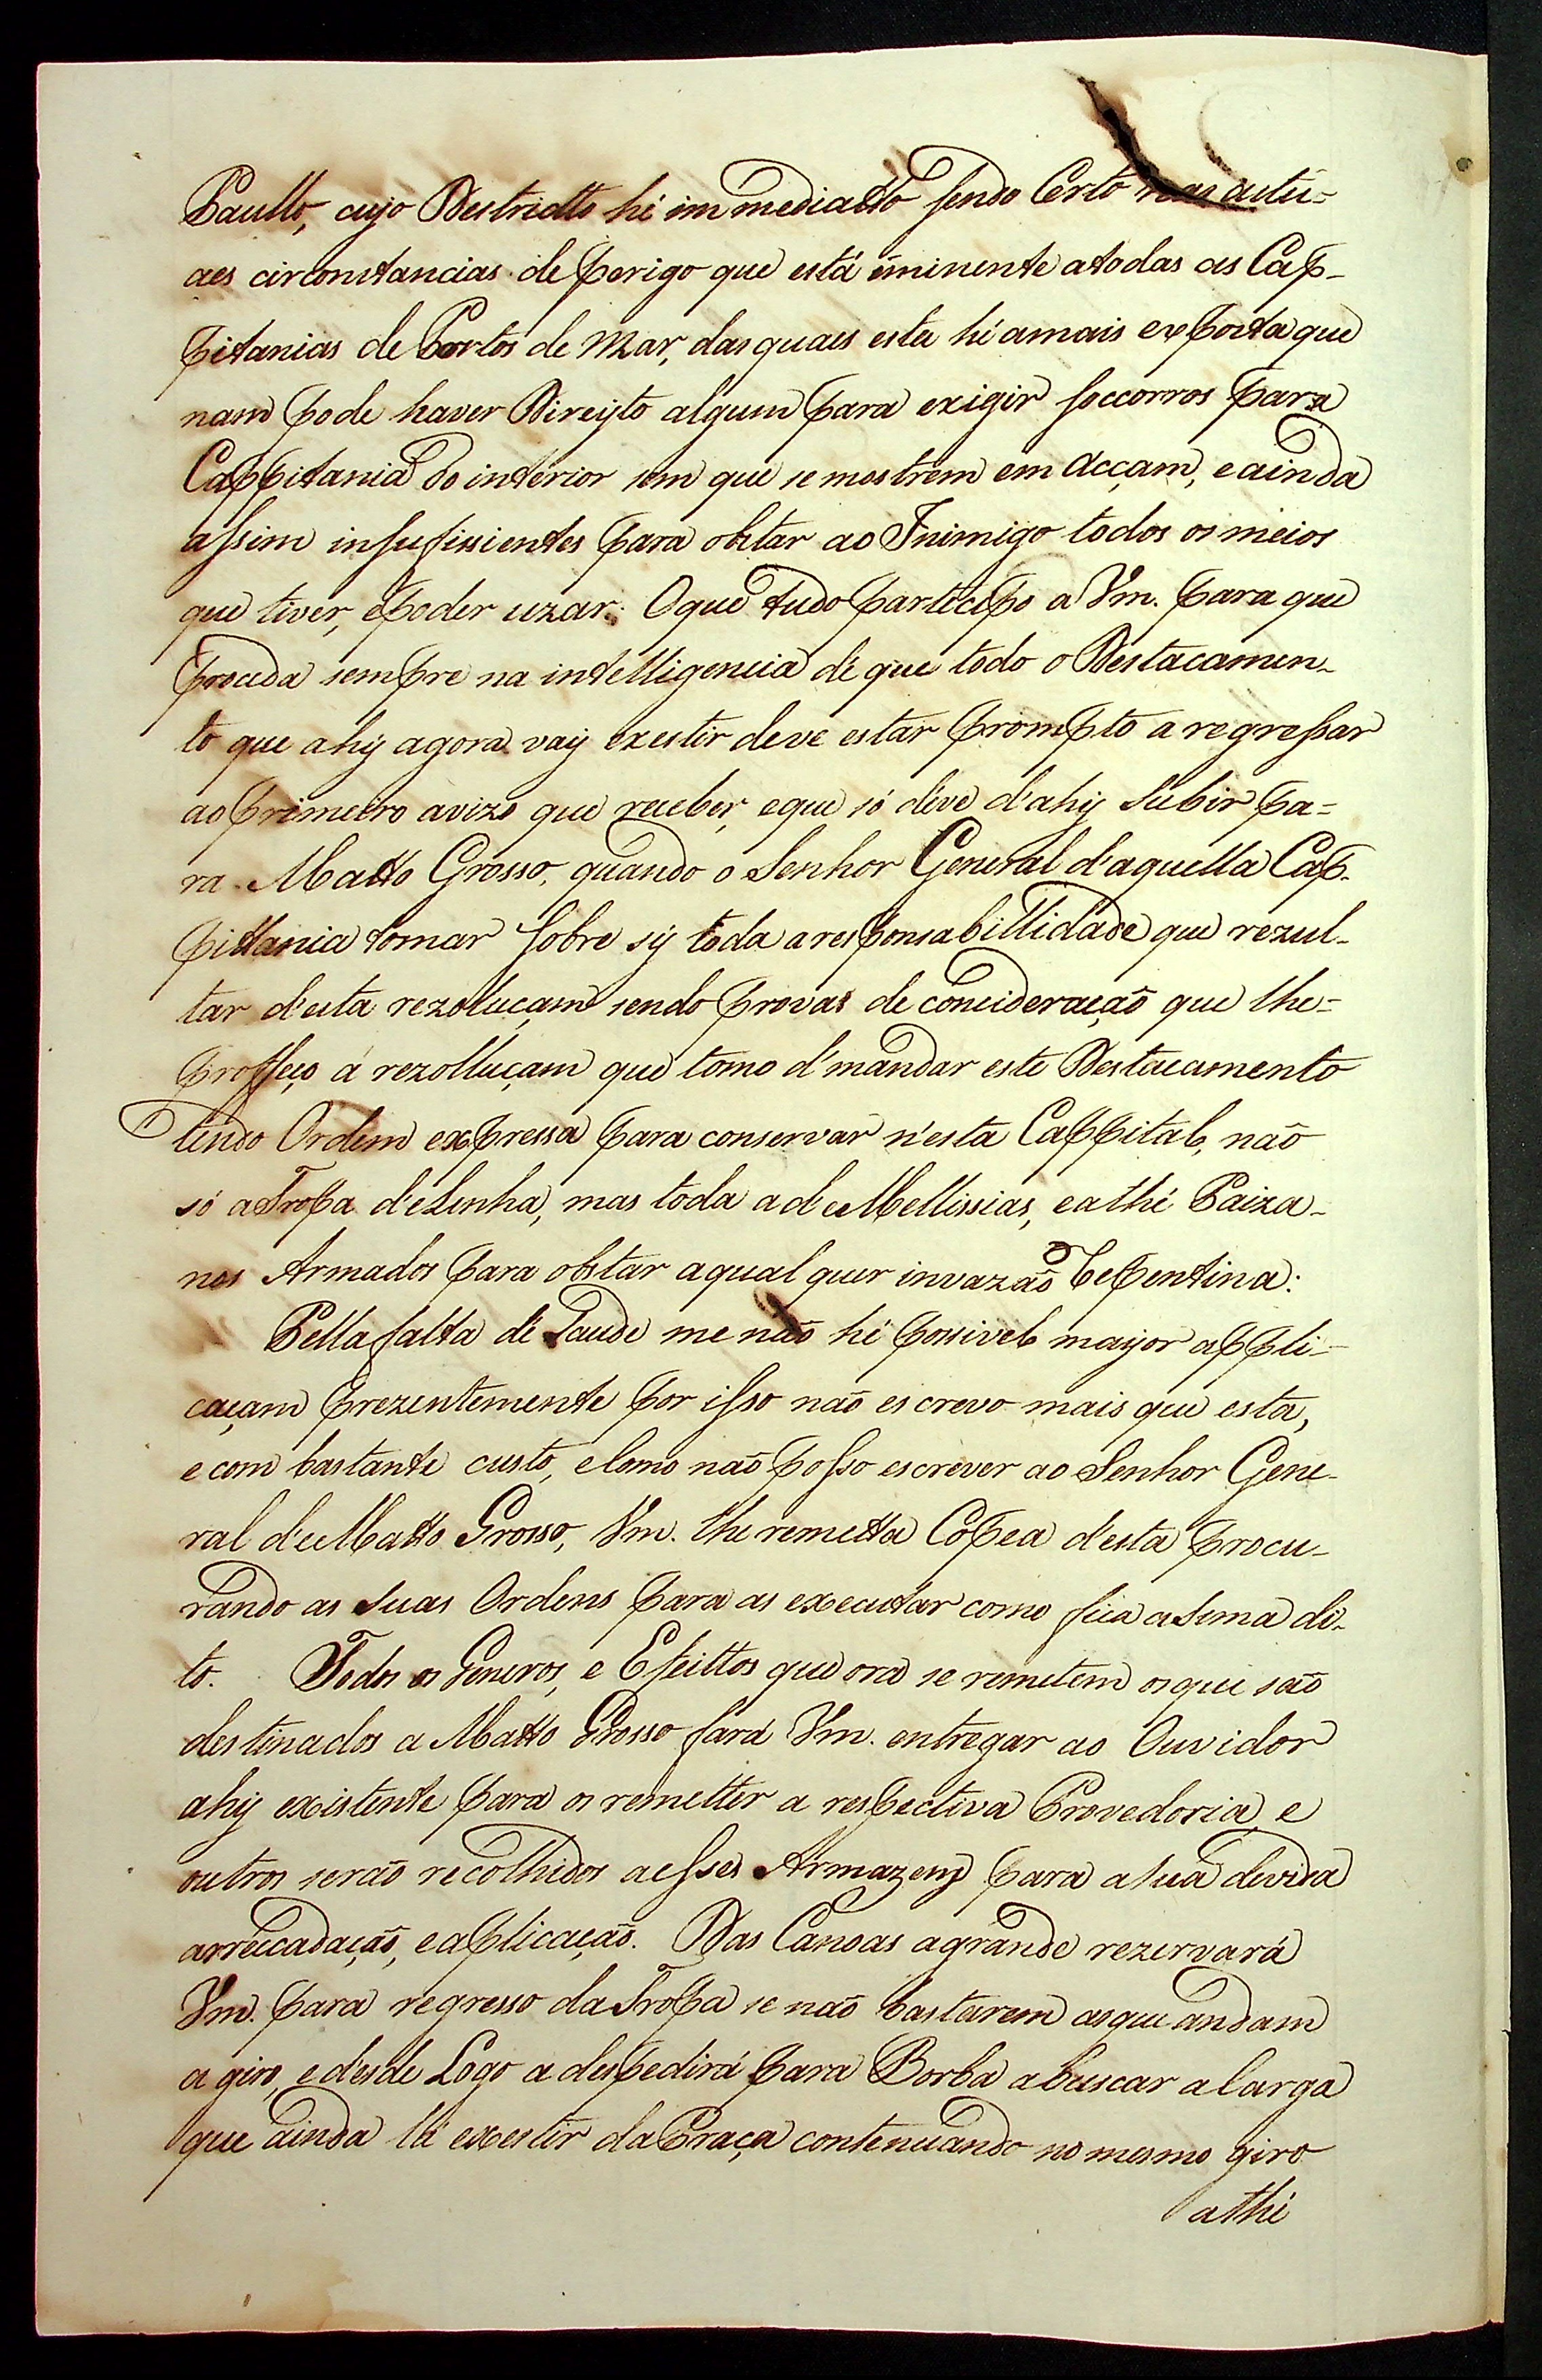 Paullo, cujo Destricto hé immediatto sendo Certo nas actu=
aes circonstancias de perigo que está iminente atodas as Cap-
pitanias de Portos de Mar, dasquaes esta hé amais exposta que
nam pode haver Direyto algum para exigir soccorros para
Cappitania do interior sem que se mostrem em Acçam, e ainda
assim insufissientes para obstar ao Inimigo todos os meios
que tiver, epoder uzar. Oque tudo participo a Vm. para que
proceda sempre na intelligencia de que todo o Destacamen-
to que ahy agora vay exestir deve estar prompto a regressar
ao primeiro avizo que receber, eque só deve d'ahy Subir pa=
ra Matto Grosso, quando o Senhor General d'aquella Cap-
pittania tomar sobre sy toda aresponsabillidade que rezul-
tar d'esta rezoluçam sendo provas de concideração que lhe=
proffeço á rezolluçam que tomo d'mandar este Destacamento
tendo Ordem expressa para conservar n'esta Cappital, não
só aTropa deLinha, mas toda a de Mellissias, eathé Paiza-
nos Armados para obstar aqualquer invazão repentina:
Pella falta de Saude me não hé possivel mayor appli-
caçam prezentemente por isso não escrevo mais que esta,
e com bastante custo, eComo não posso escrever ao Senhor Gene-
ral de Matto Grosso, Vm. lhe remetta Copea d'esta procu-
rando as suas Ordens para as executar como fica asima di-
to. Todos os Generos, e Efeittos que ora se remetem osque são
destinados a Matto Grosso fará Vm. entregar ao Ouvidor
ahy existente para os remetter a respectiva Provedoria, e
outros serão recolhidos aesses Armazens para asua devida
arrecadação, eaplicação. Das Canoas agrande rezervará
Vm. para regresso daTropa se não bastarem asque andam
a giro, e desde Logo a despedirá para Borba abuscar aCarga
que ainda lá exestir da Praça contenuando no mesmo giro
athé